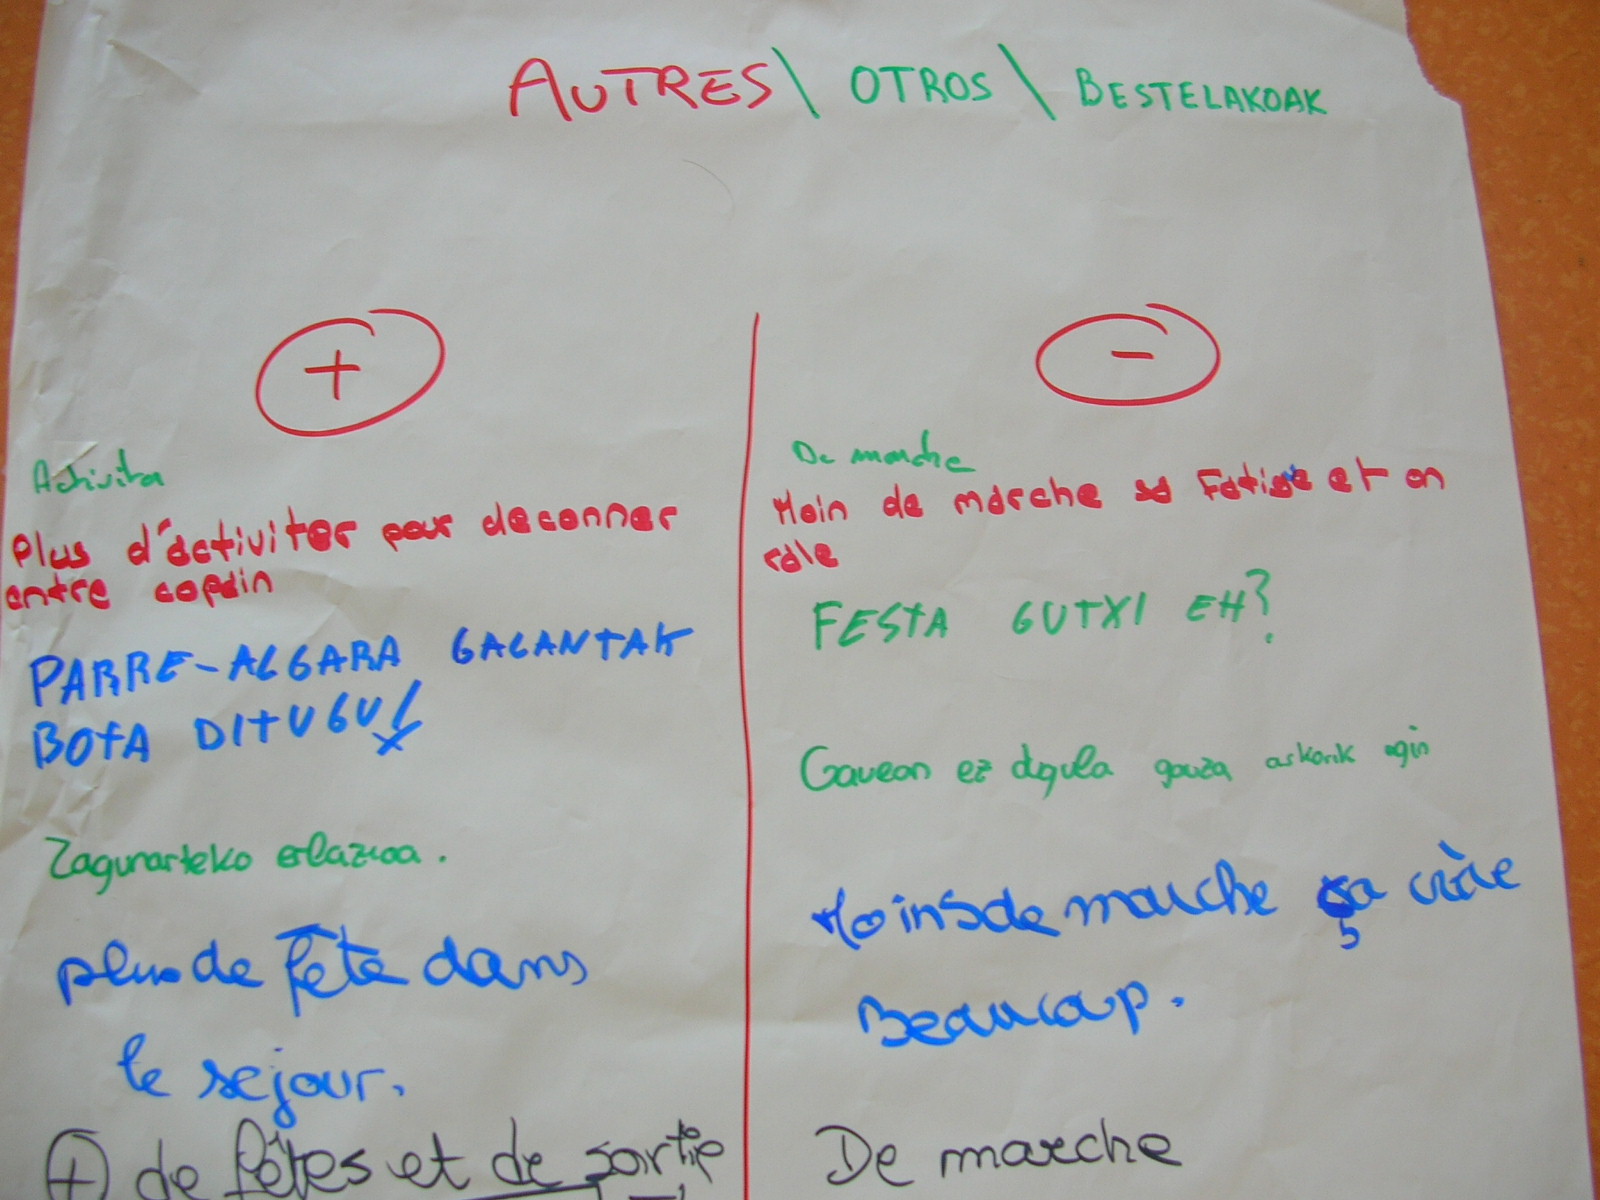 AUTRES \ OTROS \ BESTELAKOAK
+
Activiter
Plus d'activiter pour deconner
entre copain
PARRE-ALGARA GALANTAK
BOTA DITUGU!
Lagunarteko erlazioa.
plus de fête dans
le sejour.
+ de fêtes et de sortie
-
De marche
Moin de marche sa Fatige et on
rale
FESTA GUTXI EH?
Gauean ez dgula gauza askorik egin
Moins de marche ça crève
Beaucoup.
De marche